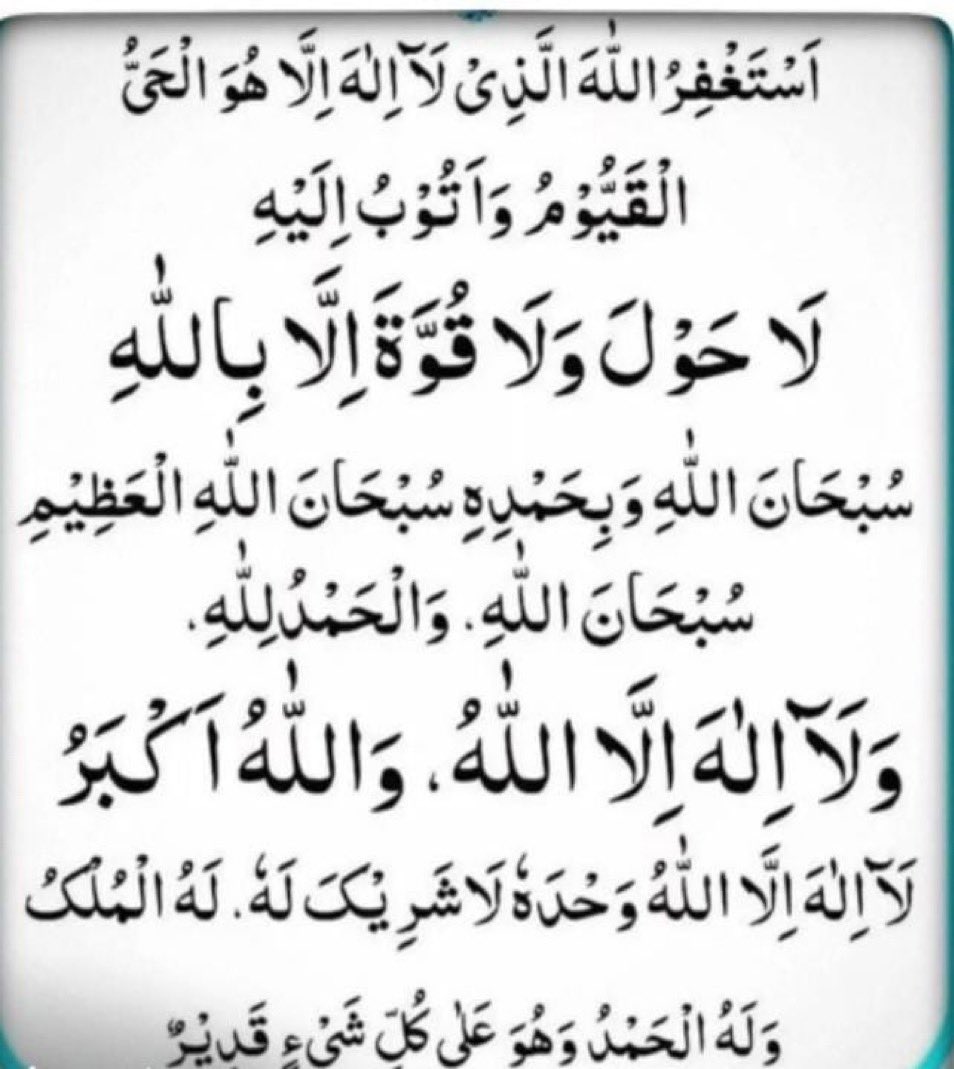 اَسْتَغْفِرُ اللّٰهَ الَّذِیْ لَآ اِلٰهَ اِلَّا هُوَ الْحَیُّ
الْقَیُّوْمُ وَاَتُوْبُ اِلَیْهِ
لَا حَوْلَ وَلَا قُوَّةَ اِلَّا بِاللّٰهِ
سُبْحَانَ اللّٰهِ وَبِحَمْدِهٖ سُبْحَانَ اللّٰهِ الْعَظِیْمِ
سُبْحَانَ اللّٰهِ. وَالْحَمْدُ لِلّٰهِ.
وَلَآ اِلٰهَ اِلَّا اللّٰهُ، وَاللّٰهُ اَكْبَرُ
لَآ اِلٰهَ اِلَّا اللّٰهُ وَحْدَهٗ لَا شَرِیْکَ لَهٗ. لَهُ الْمُلْکُ
وَلَهُ الْحَمْدُ وَهُوَ عَلٰی كُلِّ شَیْءٍ قَدِیْرٌ